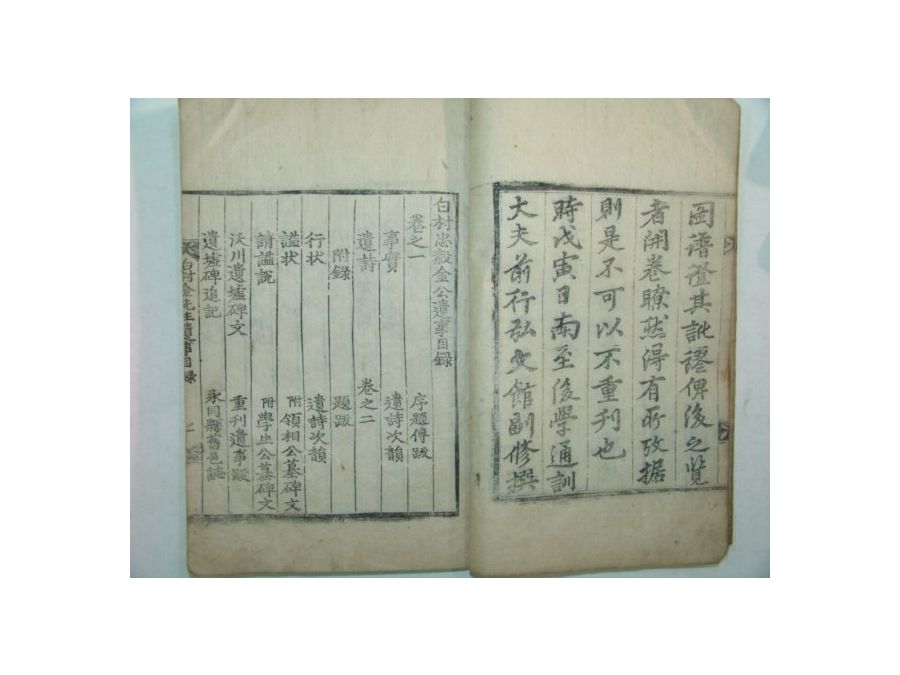 圖譜證其訛謬俾後之覽
者開卷瞭然得有所攷据
則是不可以不重刊也
時戊寅日南至後學通訓
大夫前行弘文館副修撰
白村忠毅金公遺事目錄
卷之一
序題傳跋
事實
遺詩次韻
遺詩
卷之二
附錄
題跋
行狀
遺詩次韻
謚狀
附領相公墓碑文
請謚說
附學生公墓碑文
沃川遺墟碑文
重刊遺事跋
遺墟碑追記
永同縣舊邑誌
白村金先生遺事目錄
一